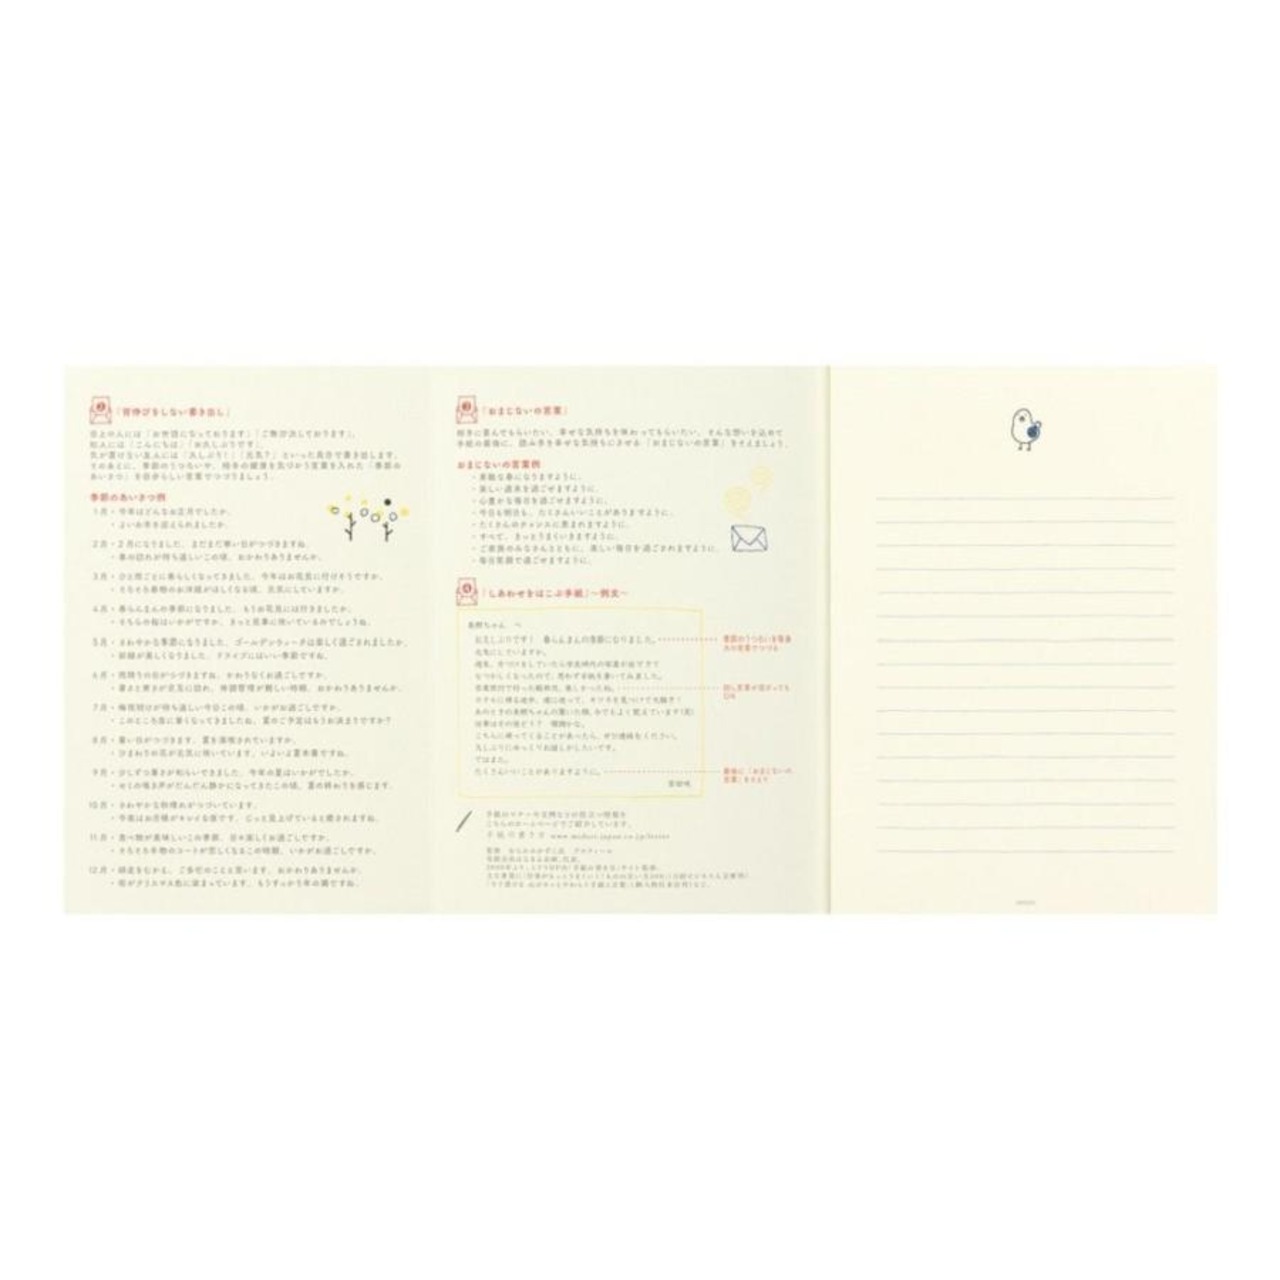 「背伸びをしない書き出し」
目上の人には「お世話になっております」「ご無沙汰しております」、
知人には「こんにちは」「お久しぶりです」、
気が置けない友人には「久しぶり!」「元気?」といった具合で書き出します。
そのあとに、季節のうつろいや、相手の健康を気づかう言葉を入れた「季節の
あいさつ」を自分らしい言葉でつづりましょう。
季節のあいさつ例
1月・今年はどんなお正月でしたか。
・よいお年を迎えられましたか。
2月・2月になりました。まだまだ寒い日がつづきますね。
・春の訪れが待ち遠しいこの頃、おかわりありませんか。
3月・ひと雨ごとに春らしくなってきました。今年はお花見に行けそうですか。
・そろそろ春物のお洋服がほしくなる頃、元気にしていますか。
4月・春らんまんの季節になりました。もうお花見には行きましたか。
・そちらの桜はいかがですか。きっと見事に咲いているのでしょうね。
5月・さわやかな季節になりました。ゴールデンウィークは楽しく過ごされましたか。
・新緑が美しくなりました。ドライブにはいい季節ですね。
6月・雨降りの日がつづきますね。かわりなくお過ごしですか。
・暑さと寒さが交互に訪れ、体調管理が難しい時期、おかわりありませんか。
7月・梅雨明けが待ち遠しい今日この頃、いかがお過ごしですか。
・このところ急に暑くなってきましたね。夏のご予定はもうお決まりですか?
8月・暑い日がつづきます。夏を満喫されていますか。
・ひまわりの花が元気に咲いています。いよいよ夏本番ですね。
9月・少しずつ暑さが和らいできました。今年の夏はいかがでしたか。
・セミの鳴き声がだんだん静かになってきたこの頃、夏の終わりを感じます。
10月・さわやかな秋晴れがつづいています。
・今夜はお月様がキレイな夜です。じっと見上げていると癒されますね。
11月・食べ物が美味しいこの季節、日々楽しくお過ごしですか。
・そろそろ冬物のコートが恋しくなるこの時期、いかがお過ごしですか。
12月・師走をむかえ、ご多忙のことと思います。おかわりありませんか。
・街がクリスマス色に染まっています。もうすっかり年の瀬ですね。
「おまじないの言葉」
相手に喜んでもらいたい、幸せな気持ちを味わってもらいたい、そんな想いを込めて
手紙の最後に、読み手を幸せな気持ちにさせる「おまじないの言葉」をそえましょう。
おまじないの言葉例
・素敵な春になりますように。
・楽しい週末を過ごせますように。
・心豊かな毎日を過ごせますように。
・今日も明日も、たくさんいいことがありますように。
・たくさんのチャンスに恵まれますように。
・すべて、きっとうまくいきますように。
・ご家族のみなさんとともに、楽しい毎日を過ごされますように。
・毎日笑顔で過ごせますように。
「しあわせをはこぶ手紙」〜例文〜
ちゃん へ
お久しぶりです! 春らんまんの季節になりました。
元気にしていますか。
なつかしくなったので、思わず手紙を書いてみました。
仕事はその後どう? 順調かな。
こちらに帰ってくることがあったら、ぜひ連絡をください。
久しぶりにゆっくりお話しがしたいです。
ではまた。
たくさんいいことがありますように。
季節のうつろいを等身
大の言葉でつづる
話し言葉が混ざっても
OK
最後に「おまじないの
言葉」をそえて
手紙のマナーや文例などの役立つ情報を
こちらのホームページでご紹介しています。
手紙の書き方 www.midori-japan.co.jp/letter